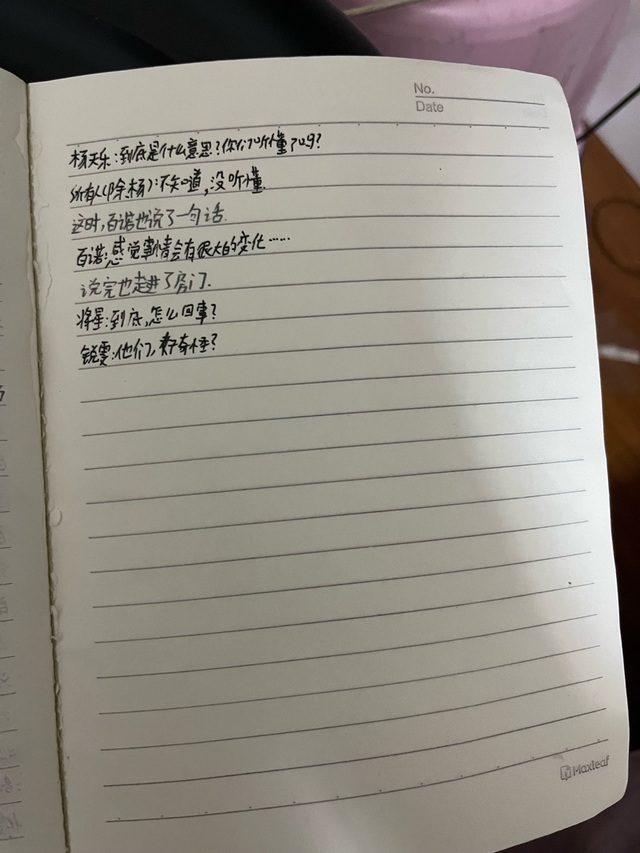 No.
Date
杨天乐:到底是什么意思?你们听懂了吗?
所有人(除杨):不知道,没听懂.
这时,百诺也说了一句话.
百诺:感觉事情会有很大的变化……
说完也走进了房门.
将星:到底,怎么回事?
锐雯:他们,好奇怪?
Maxleaf